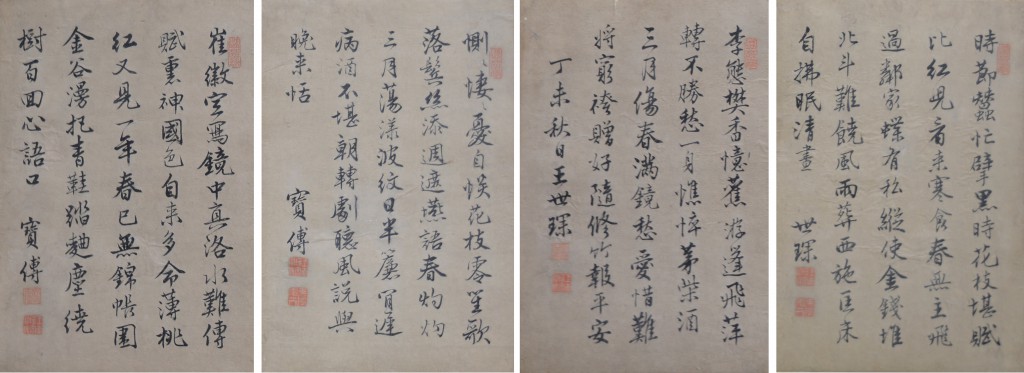 時節蠶忙擘黑時花枝堪賦
比紅兒看来寒食春無主飛
過鄰家蝶有私縱使金錢堆
北斗難饒風雨葬西施匡床
自拂眠清晝
世琛
李態樊香憶舊游蓬飛萍
轉不勝愁一身憔悴茅柴酒
三月傷春滿鏡愁愛惜難
將窮袴贈好隨修竹報平安
丁未秋日王世琛
惻〻悽〻憂自惔花枝零
落鬢絲添週遮燕語春灼灼
三月蕩漾波紋日半簾
病酒不堪朝轉劇聽風說與
晚来恬
寶傅
崔徽空寫鏡中真洛水難傳
賦裏神國色自来多命薄桃
紅又見一年春已無錦帳圍
金谷漫把青鞋踏麯塵繞
樹百回心語口
寶傅